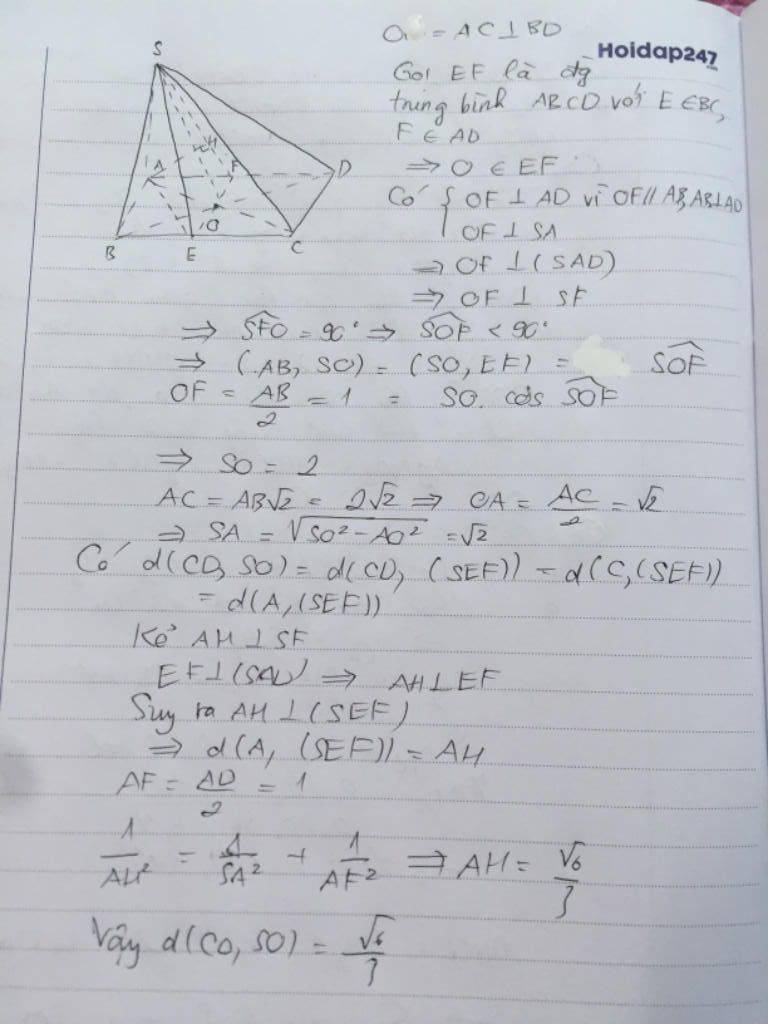 = AC ⊥ BD
Hoidap247
Gọi EF là đg
trung bình ABCD với E ∈ BC,
F ∈ AD
⇒ O ∈ EF
Có { OF ⊥ AD vì OF // AB, AB ⊥ AD
OF ⊥ SA
⇒ OF ⊥ (SAD)
⇒ OF ⊥ SF
S
H
A
F
D
O
B
E
C
⇒ \widehat{SFO} = 90° ⇒ \widehat{SOF} < 90°
⇒ (AB, SO) = (SO, EF) = \widehat{SOF}
OF = AB/2 = 1 = SO. cos \widehat{SOF}
⇒ SO = 2
AC = AB√2 = 2√2 ⇒ OA = AC/2 = √2
⇒ SA = √(SO² - AO²) = √2
Có d(CD, SO) = d(CD, (SEF)) = d(C, (SEF))
= d(A, (SEF))
Kẻ AH ⊥ SF
EF ⊥ (SAD) ⇒ AH ⊥ EF
Suy ra AH ⊥ (SEF)
⇒ d(A, (SEF)) = AH
AF = AD/2 = 1
1/AH² = 1/SA² + 1/AF² ⇒ AH = √6/3
Vậy d(CD, SO) = √6/3